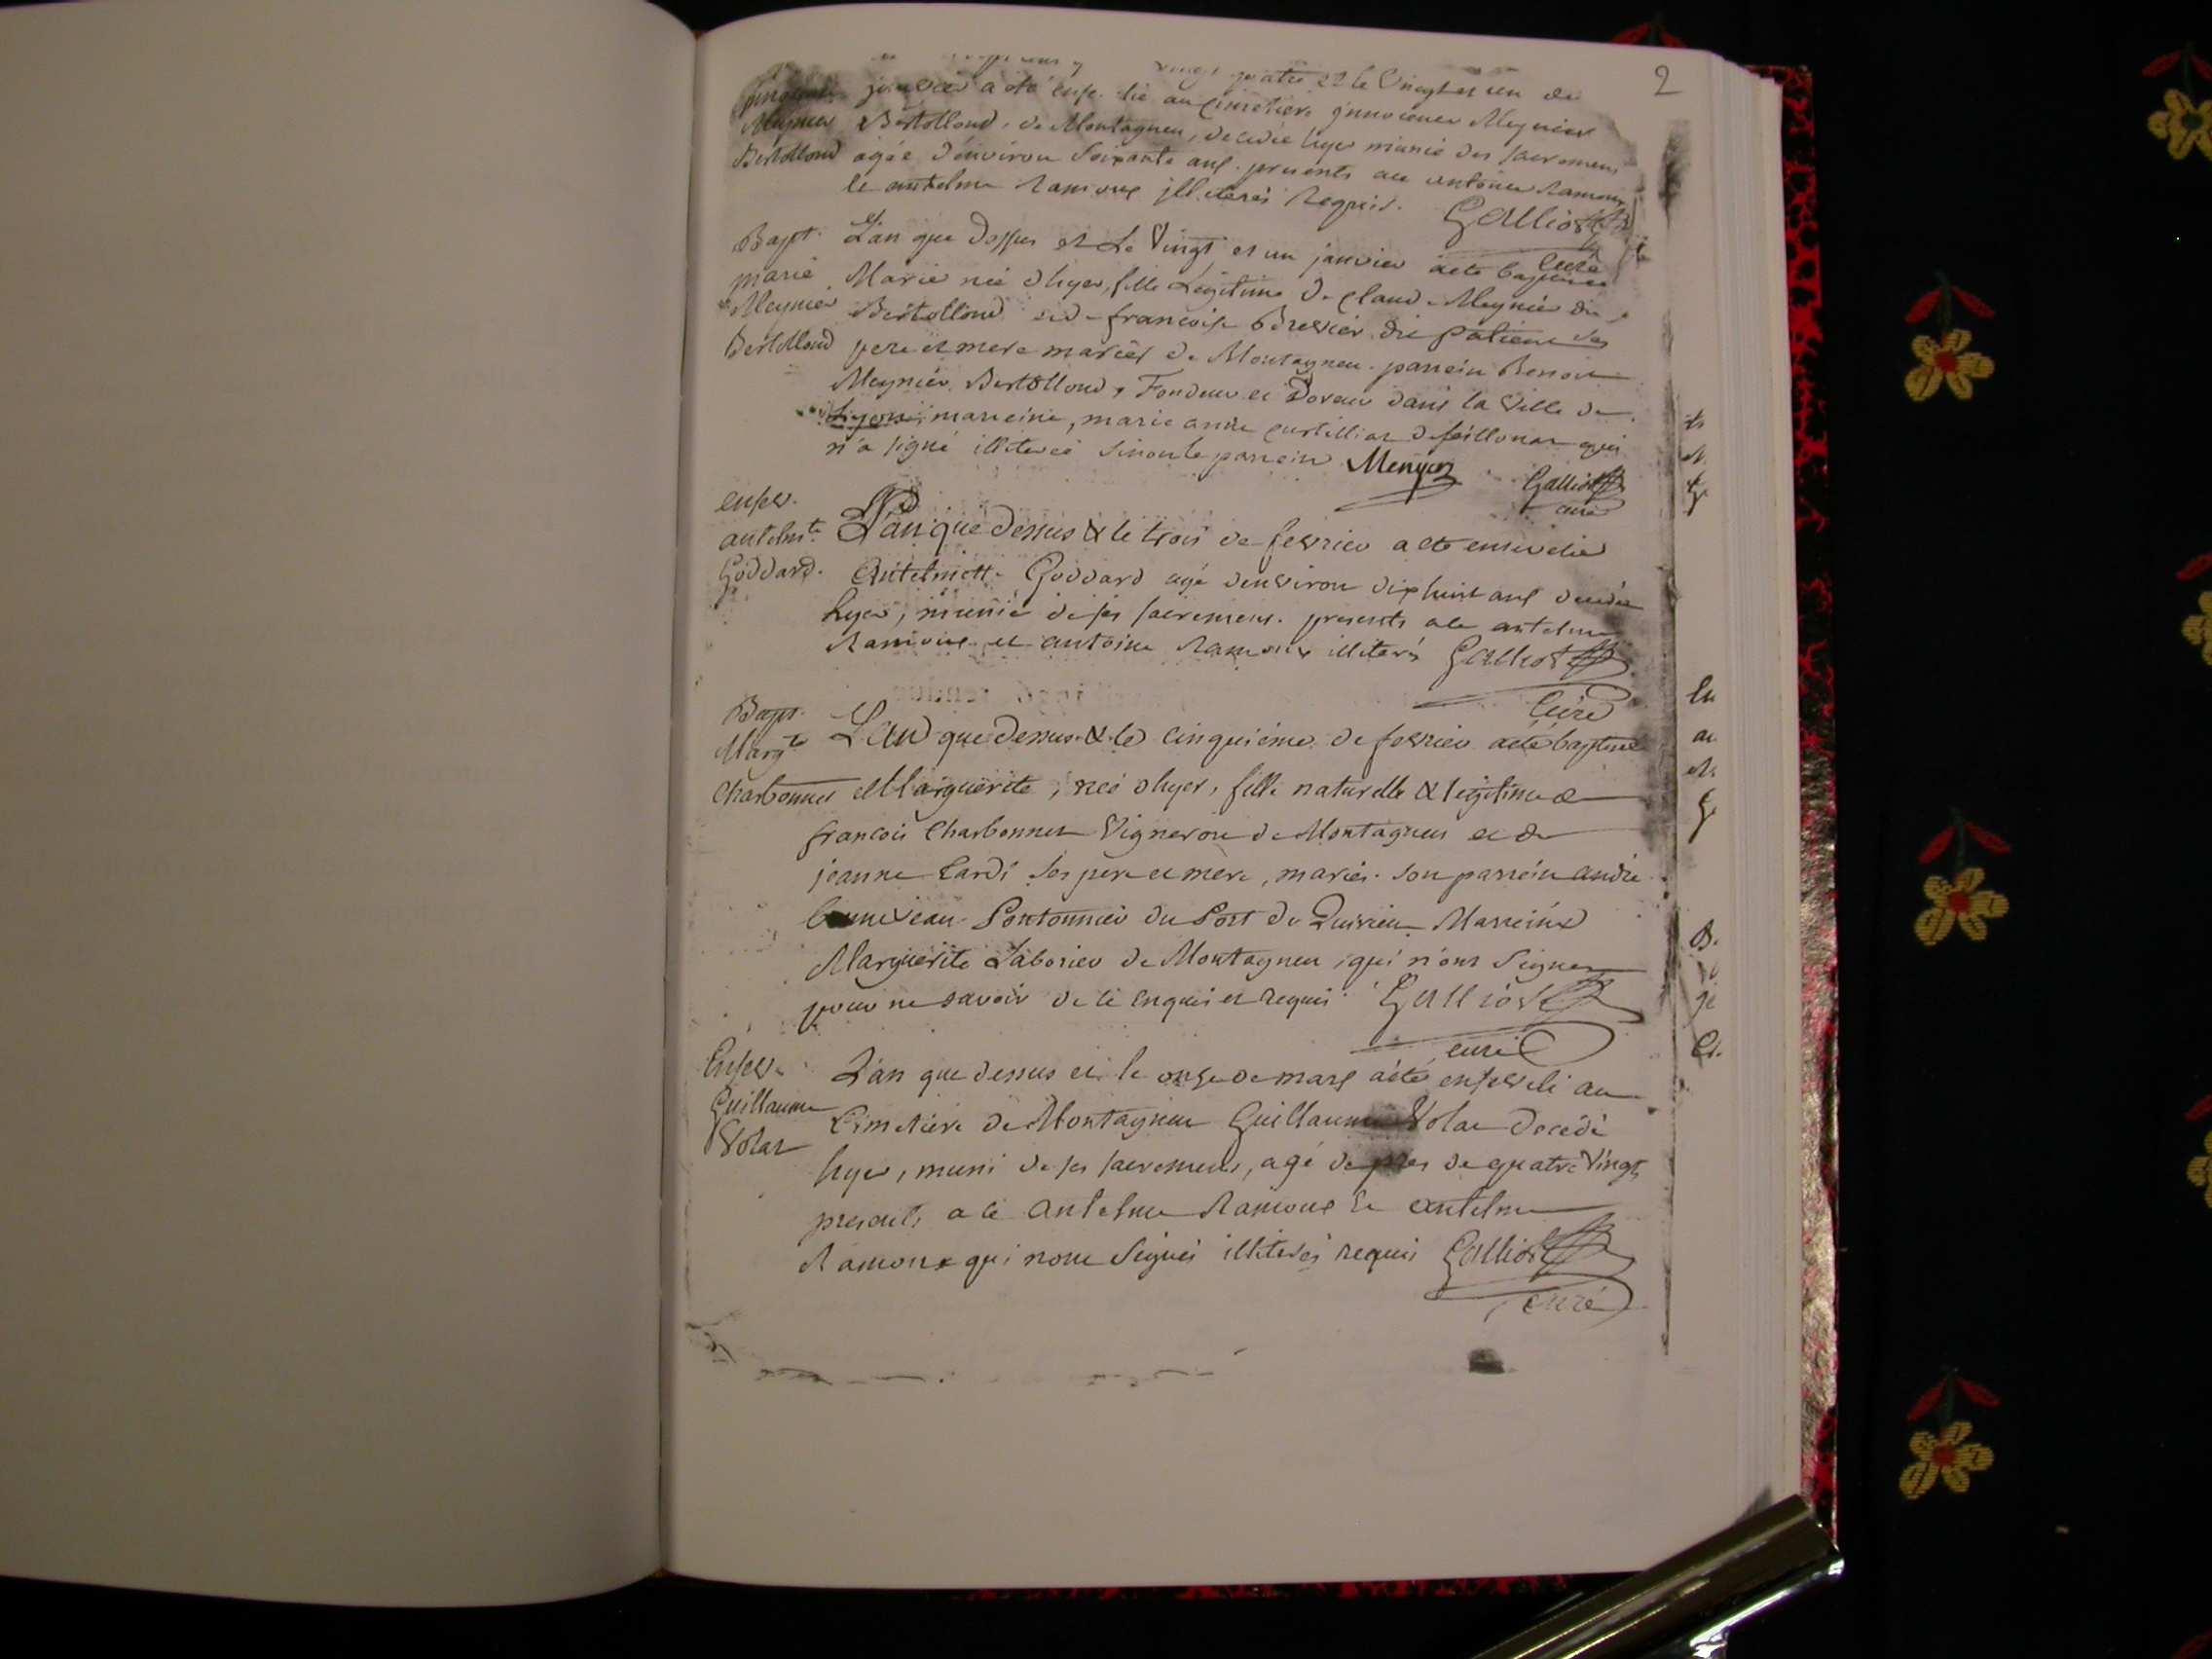 2
vingt quatre 22 le Vingt et un de
janvier a été ensevelie au cimetiere Meynier
Meynier Bertolloud, de Montagneu, decedée hyer munie des sacremens
Bertolloud agée d'environ soixante ans. presents a ce antoine Ramoux
le antelme Ramoux illiterés Requis. Galliost
curé
Bapt. L'an que dessus et Le Vingt et un janvier a eté baptisée
marie Marie née d'hyer, fille Legitime de claude Meynier dit
Meynier Bertolloud et de francoise Bressier dit ses
Bertolloud pere et mere mariés de Montagneu. parrein Benoit
Meynier Bertolloud, Fondeur et Doreur dans la Ville de
Lyon, marreine, marie anne qui
n'a signé illiterée sinon le parrein Menyer Galliost
curé
ensev.
antelmte L'an que dessus & le trois de fevrier a eté ensevelie
Goddard. Antelmette Goddard agé d'environ dixhuit ans decedée
hyer, munie de ses sacremens. presents a ce antelme
Ramoux et antoine Ramoux illiterés Galliost
curé
Bapt.
Margte L'an que dessus & le cinquieme de fevrier a eté baptisée
Charbonnet Marguerite, née d'hyer, fille naturelle & legitime de
francois Charbonnet Vigneron de Montagneu et de
jeanne Tardi ses pere et mere, mariés. son parrein andré
Pontonnier du Port de Quirieu Marreine
Marguerite Laborier de Montagneu, qui n'ont signer
pour ne savoir de ce enquis et requis. Galliost
curé
Ensev. L'an que dessus et le onze de mars a eté enseveli au
Guillaume Cimetiere de Montagneu Guillaume Volat decedé
Volat hyer, muni de ses sacremens, agé de près de quatre Vingt,
presents a ce Antelme Ramoux le antelme
Ramoux qui n'ont Signés illiterés requis Galliost
curé